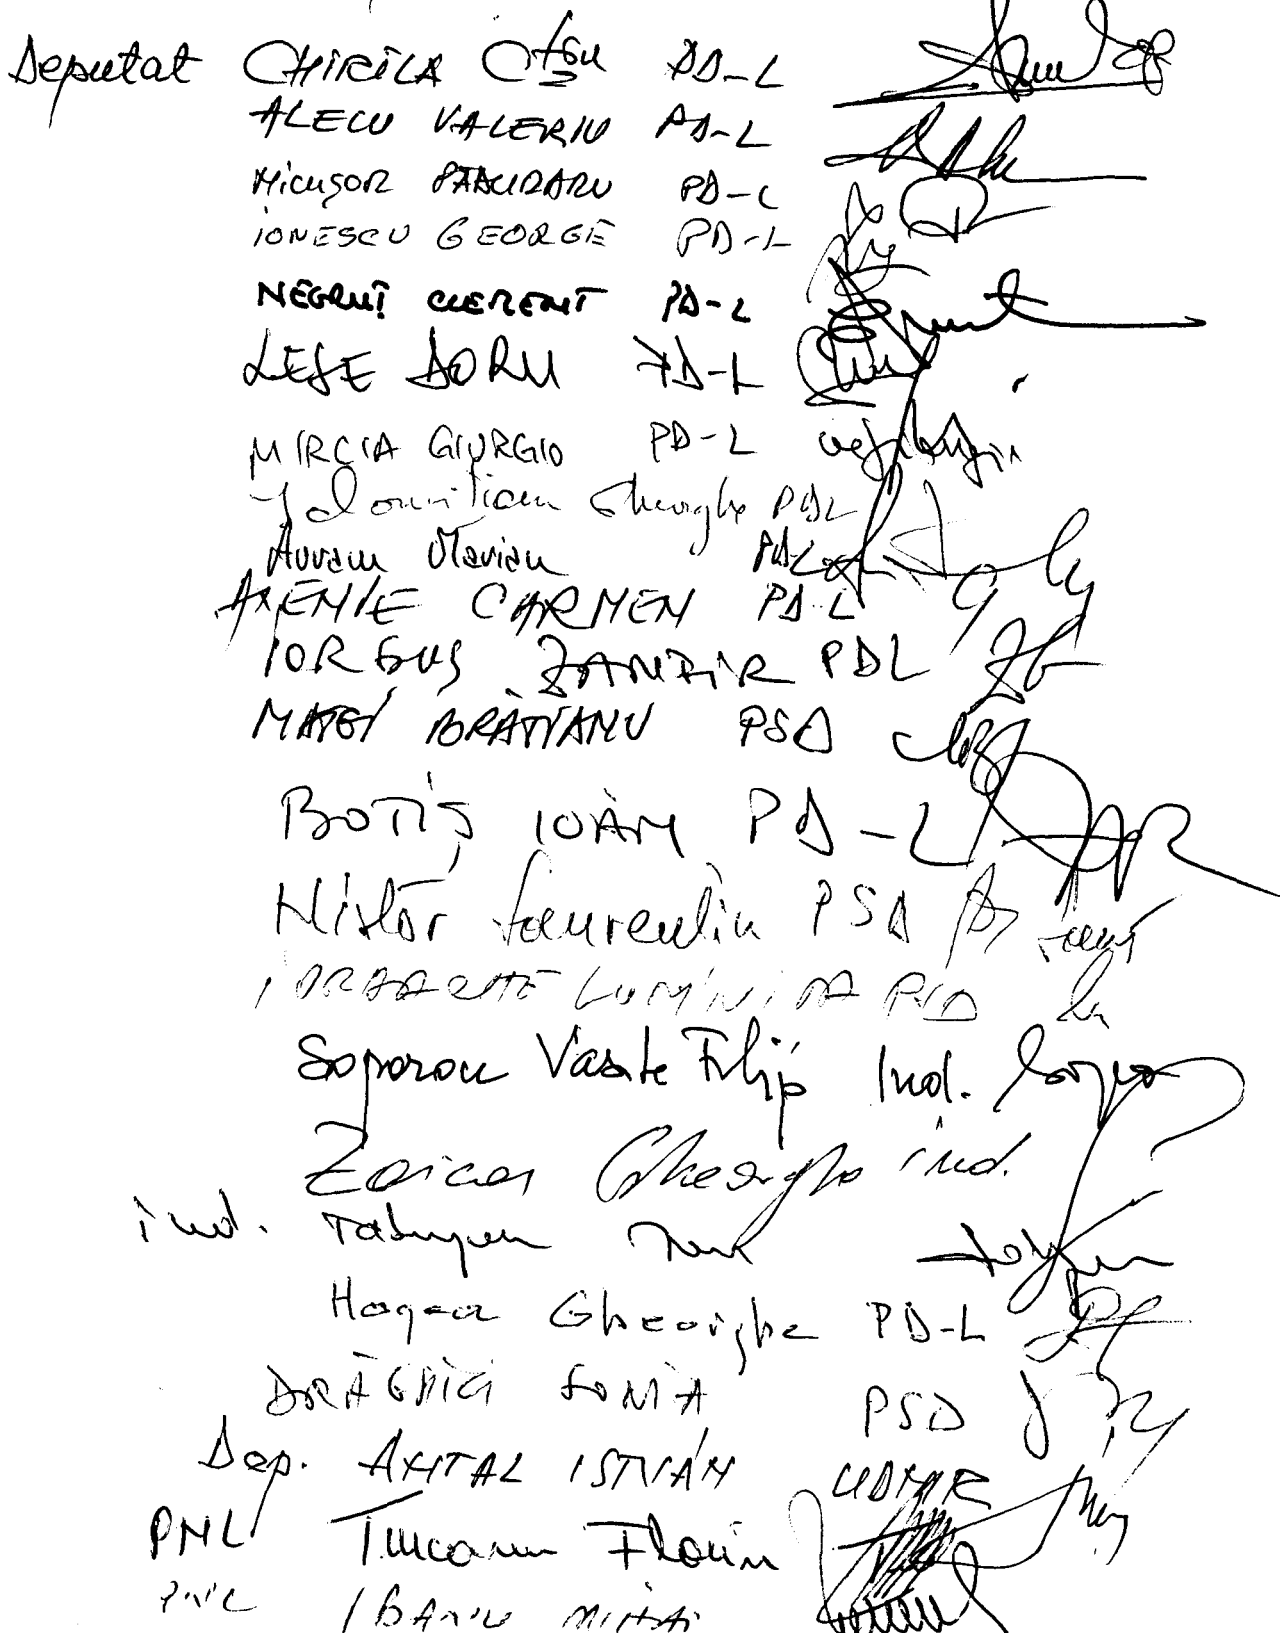 Deputat CHIRILA Oțiu PD-L
ALECU VALERIU PD-L
Nicușor PĂDURARU PD-L
IONESCU GEORGE PD-L
NEGRUȚ CLEMENT PD-L
LEȘE DORU PD-L
MIRCIA GIURGIU PD-L
Ialomițian Gheorghe PDL
Avram Marian PD-L
AXENIE CARMEN PD-L
IORGUȘ ZANFIR PDL
MATEI BRĂTIANU PSD
BOTIȘ IOAN PD-L
Nistor Laurențiu PSD
IORDACHE LUMINIȚA PSD
Soporan Vasile Filip Ind.
Zoicaș Gheorghe ind.
ind.
Hogea Gheorghe PD-L
DRĂGHICI SONIA PSD
Dep. ANTAL ISTVÁN UDMR
PNL Țurcanu Florin
PNL BANU MIHAI